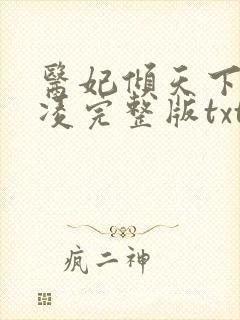 醫妃傾天下
凌完整版txt
疯二神